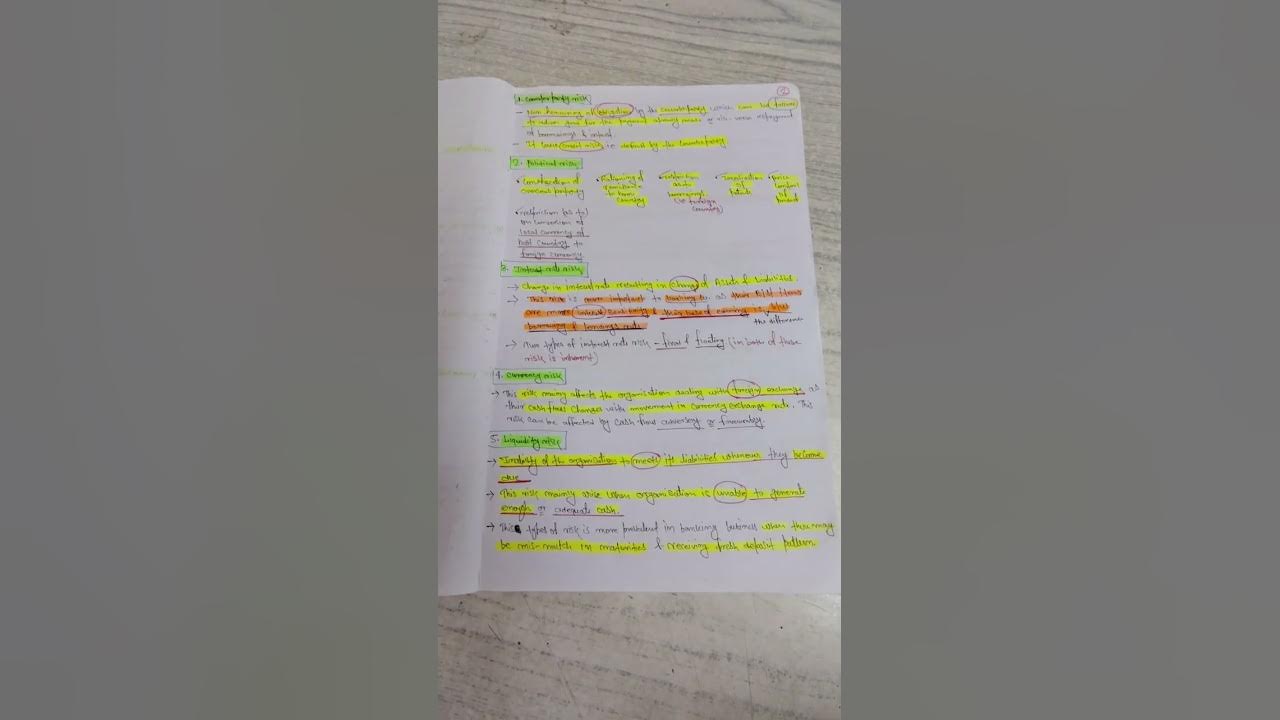 2
1. Counterparty risk
- Non honouring of obligation by the counterparty which can be failure
to deliver good for the payment already made or vis-versa repayment
of borrowings & interest.
- It cover credit risk i.e. default by the counterparty
2. Political risk
• Confiscation of overseas property
• Rationing of remittance to home country
• restriction as to borrowings (to foreign country)
• Invalidation of Patents
• price control of product
• restriction (as to) on conversion of local currency of host country to foreign currency
3. Interest rate risk
→ Change in interest rate resulting in change of Assets & liabilities.
→ This risk is more important to banking co. as their B/S items
are more interest sensitivity & their base of earning is b/w
the difference
borrowing & lendings rate
→ Two types of interest rate risk - fixed & floating (in both of these
risk is inherent)
4. Currency risk
→ This risk mainly affects the organisation dealing with foreign exchange as
their cash flows changes with movement in currency exchange rate. This
risk can be affected by cash flow adversely or favourably.
5. Liquidity risk
→ Inability of the organisation to meets its liabilities whenever they become
due
→ This risk mainly arise when organisation is unable to generate
enough or adequate cash.
→ This types of risk is more prevalent in banking business when there may
be mis-match in maturities & receiving fresh deposit pattern.